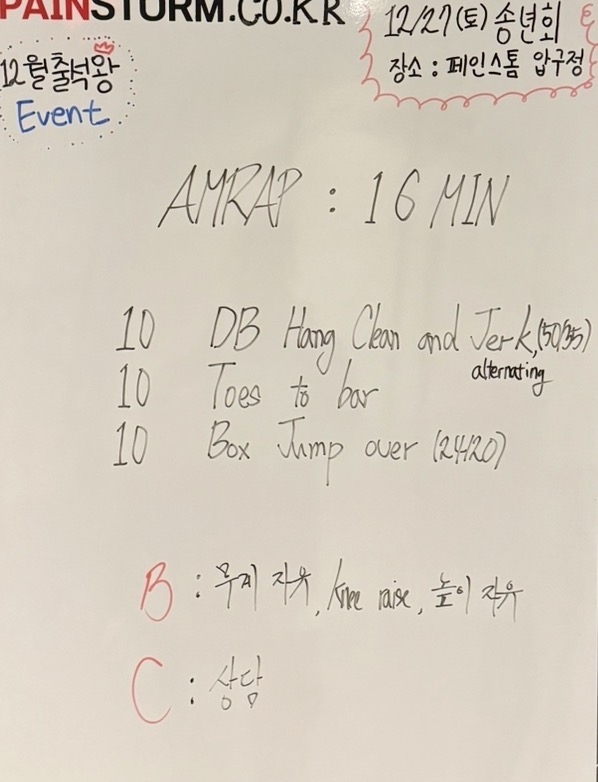 PAINSTORM.CO.KR
12/27(토) 송년회
장소 : 페인스톰 압구정
12월 출석왕
Event
AMRAP : 16 MIN
10 DB Hang Clean and Jerk,(50/35)
alternating
10 Toes to bar
10 Box Jump over (24/20)
B : 무게 자유, knee raise, 높이 자유
C : 상담